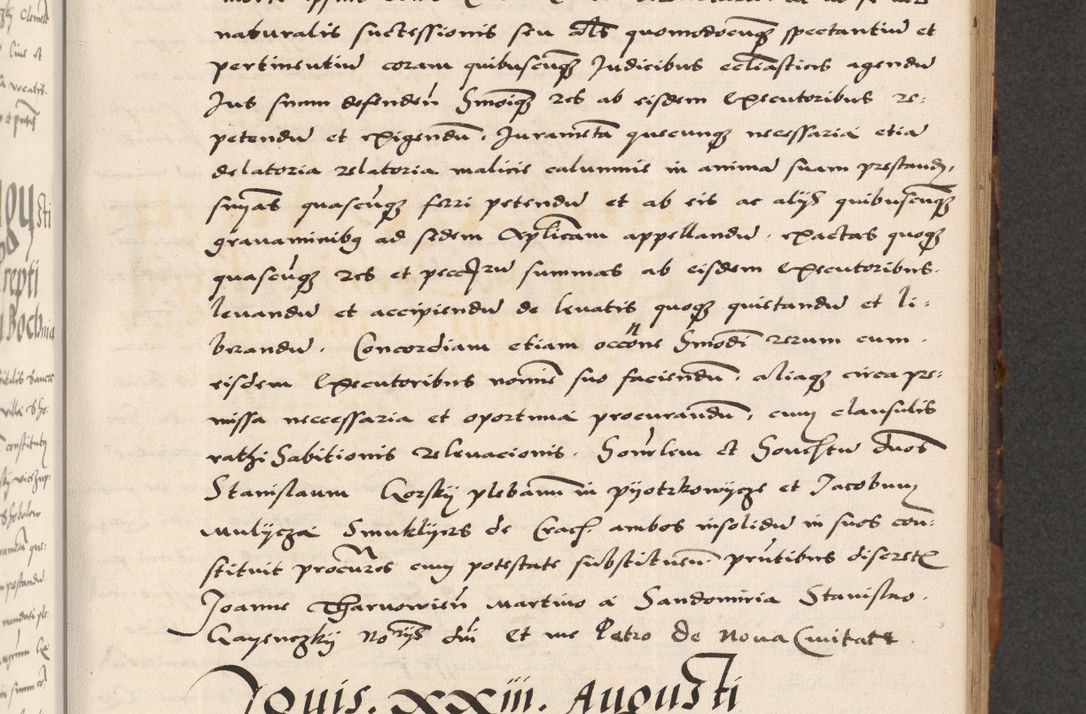 naturalis successionis seu al̄s quomodocunq̨ spectantiu̅ et
pertinentiu̅ coram quibuscu̅q̨ Judicibus eccl̄iasticis agendu̅
Jus suum defenden̄ omēsq̨ res ab eisdem Executoribus re:
petendu̅ et exigendu̅. Juramēta quecunq̨ necessaria etia̅
delatoria relatoria malicie calumnie in anima̅ suam prestandj.
sn̄ias quascu̅q̨ ferri petendu̅ et ab eis ac alijs quibuscu̅q̨
grauaminibq ad sedem Ap̄licam appellandu̅. exactas quoq̨
quascu̅q̨ res et pecc̄iaru̅ summas ab eisdem Executoribus.
leuandu̅ et accipiendu̅ de leuatis quoq̨ quietandu̅ et li:
berandu̅. Concordiam etiam occōne rerum cum.
eisdem Executoribus noīnie suo faciendu̅. aliaq̨ circa pre:
missa neccessaria et oportuna procurandu̅. cum clausulis
rathihabitionis releuacionis. et duos
Stanislaum Gorskÿ plebanu̅ in pÿotrkowÿcze et Jacobum
mulÿcza de Crac̄. ambos insolidu̅ in suos con:
stituit procūres cum potestate substituen̄. prn̄tibus discretis
Joanne Tharnowien̄ Martino a Sandomiria Stanislao.
No̅rijs dn̄i Et me Petro de Noua Ciuitate
Jouis. XXIII. Augusti